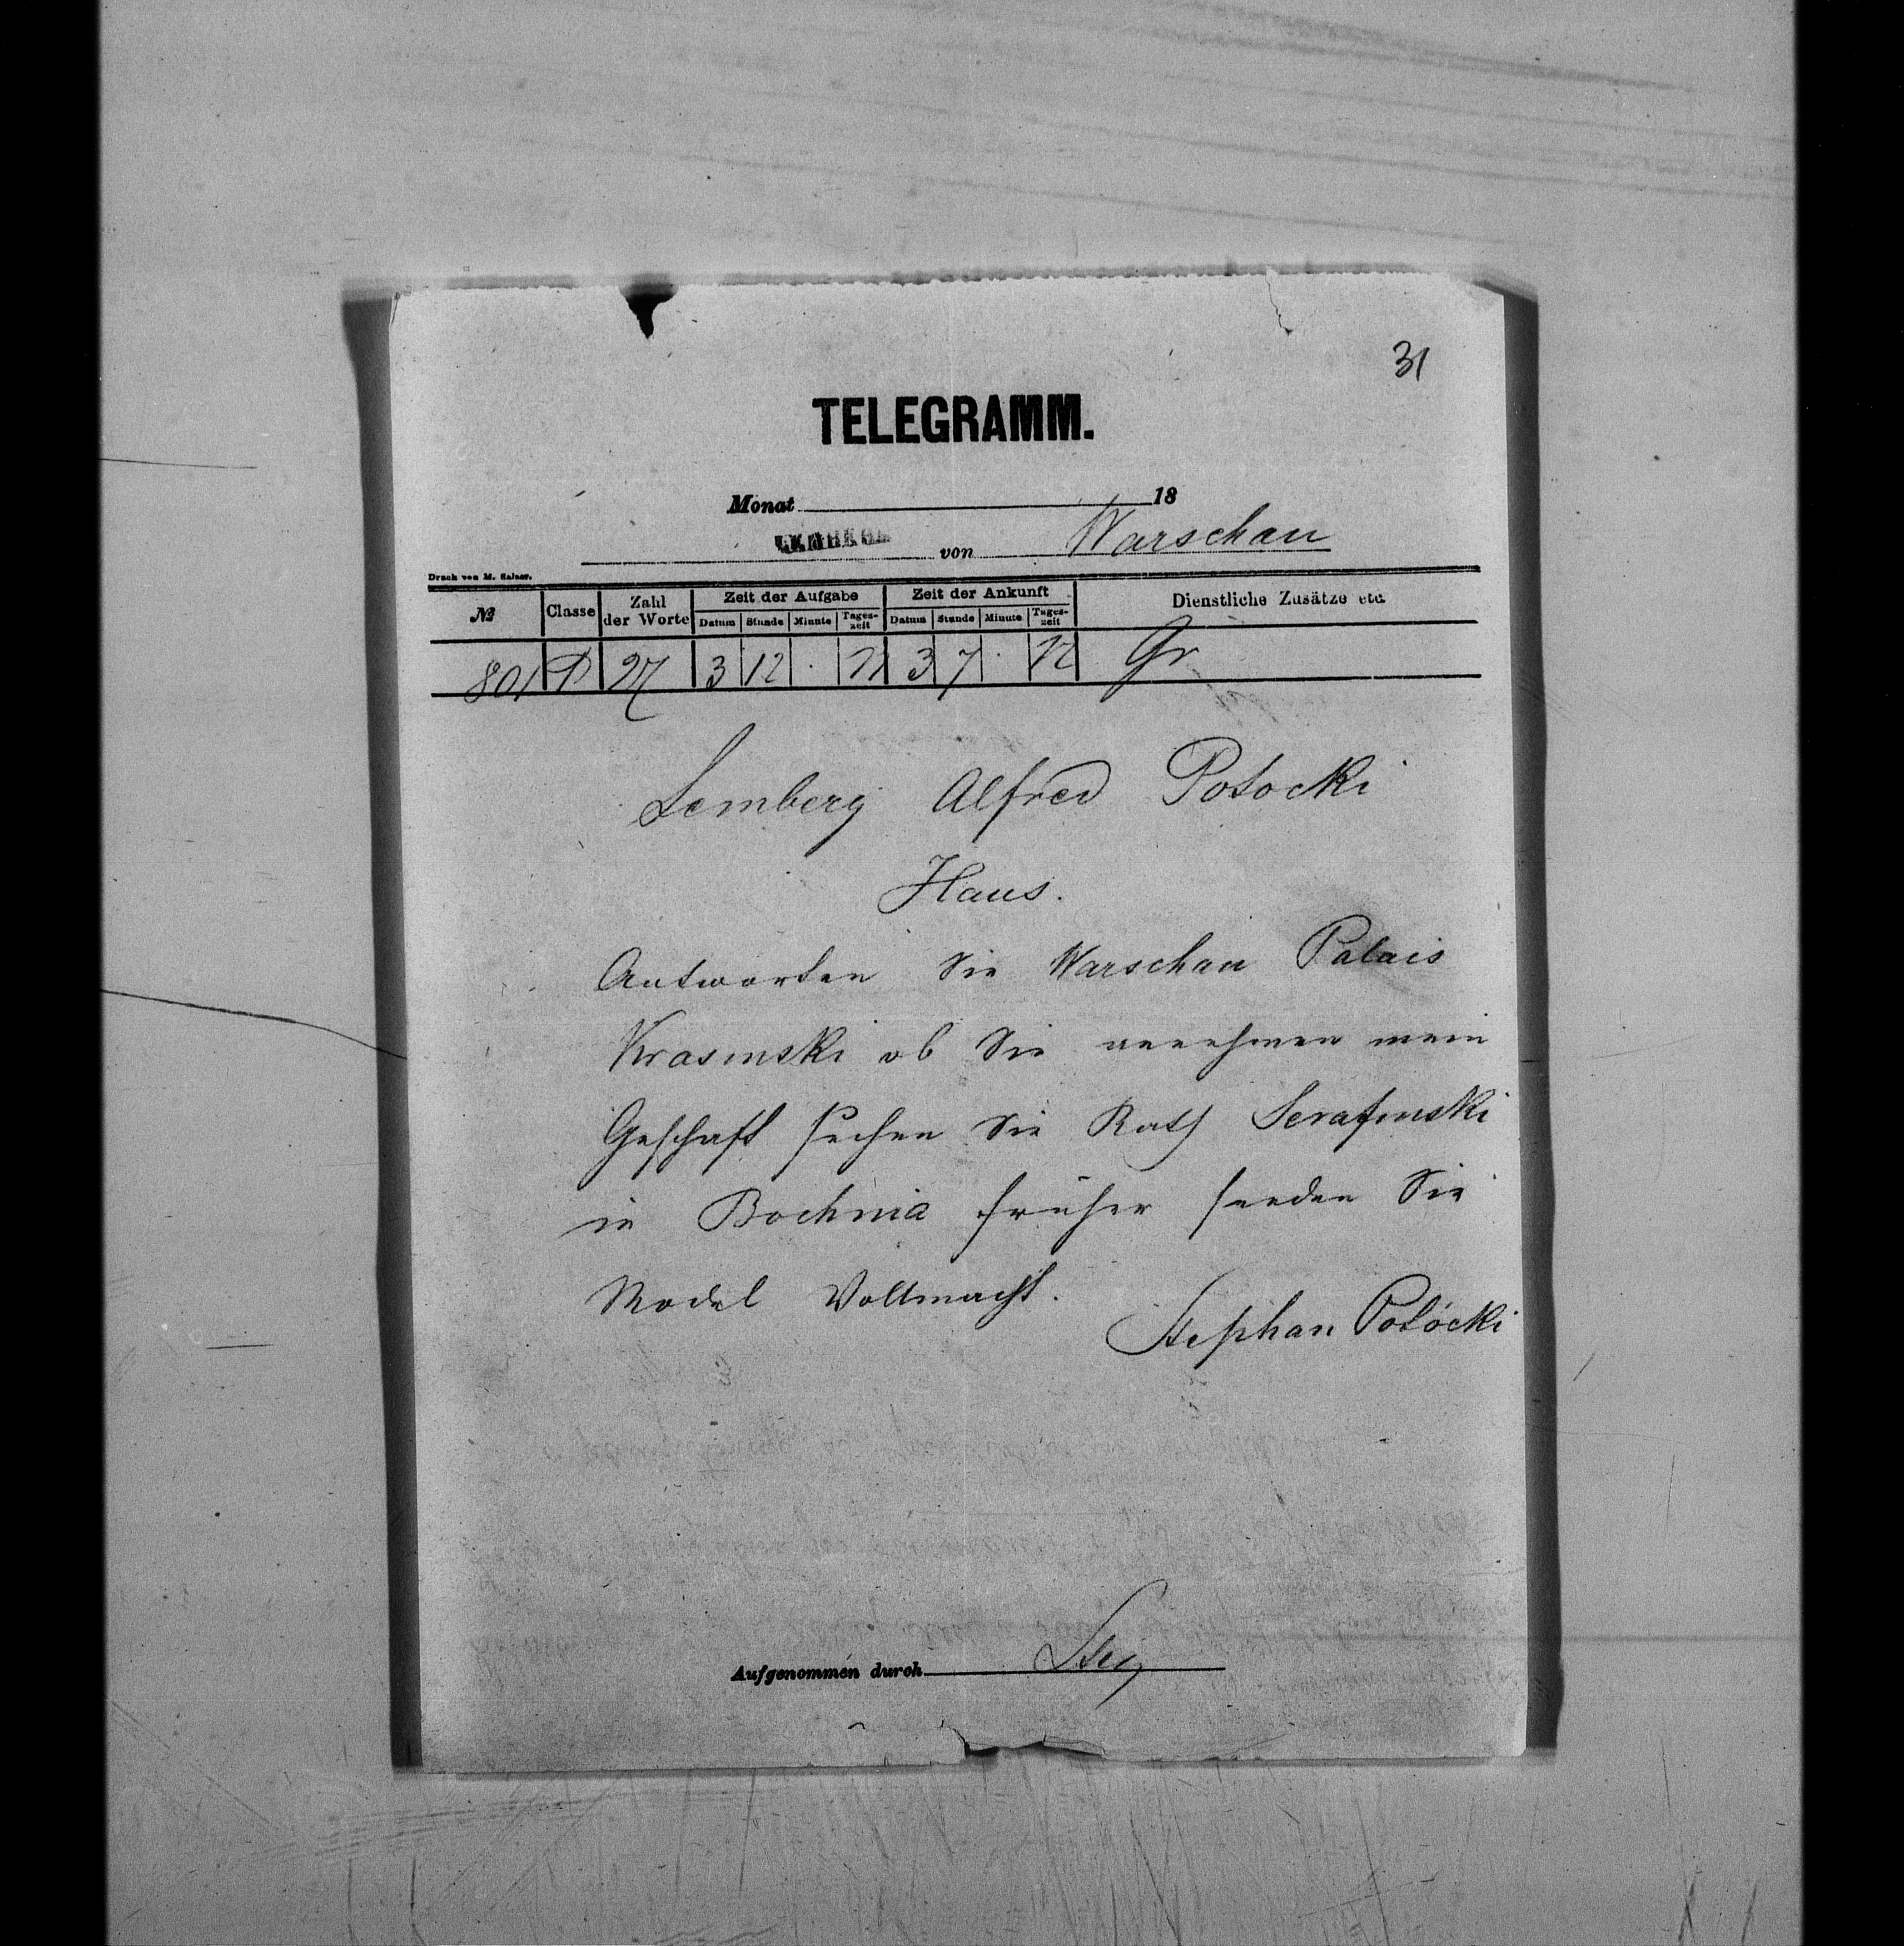 31
TELEGRAMM.
Monat 18
LEMBERG von Warschau
Druck von M. Salzer.
№ Classe Zahl der Worte Zeit der Aufgabe Zeit der Ankunft Dienstliche Zusätze etc
Datum Stunde Minute Tages-zeit Datum Stunde Minute Tages-zeit
801 P 27 3 12 3 7 Gr
Lemberg Alfred Potocki
Haus.
Antworten Sie Warschau Palais
Krasinski ob Sie annehmen mein
Geschaft suchen Sie Rath Serafinski
in Bochnia früher senden Sie
Model Vollmacht.
Stephan Potócki
Aufgenommen durch